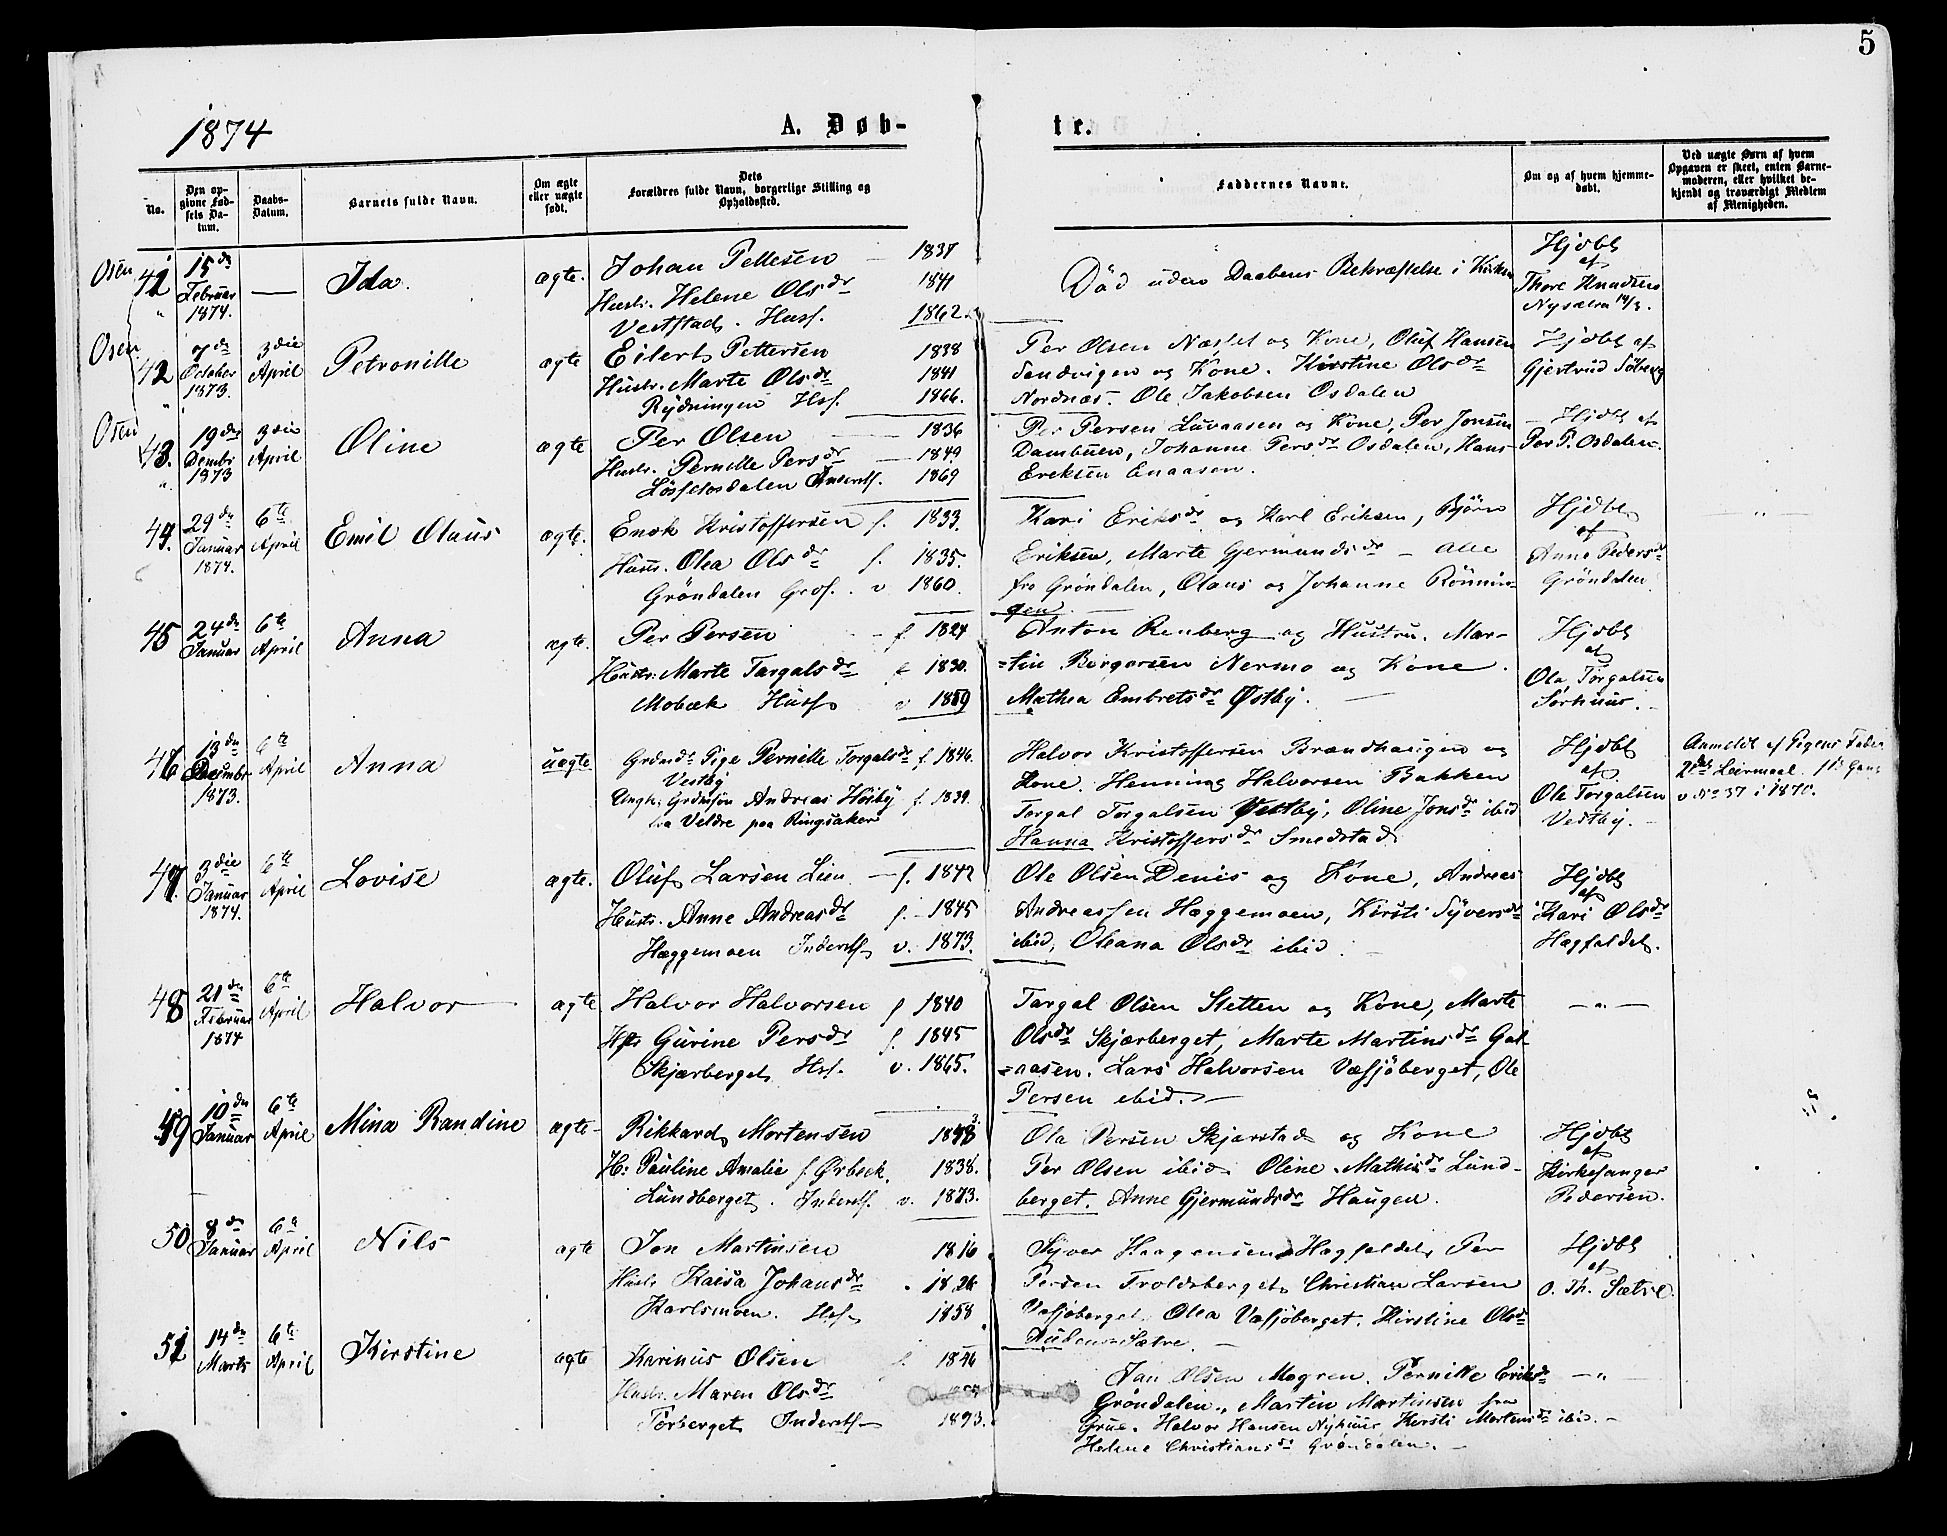 5
1874
A. Døb-
te.
No.
Den op-
givne Fød-
sels Da-
tum.
Daabs-
Datum.
Barnets fulde Navn.
Om ægte
eller uægte
født.
Dets
Forældres fulde Navn, borgerlige Stilling og
Opholdssted.
Faddernes Navne.
Om og af hvem hjemme-
døbt.
Ved uægte Børn af hvem
Opgaven er skeet, enten Barne-
moderen, eller hvilket be-
kjendt og troværdigt Medlem
af Menigheden.
Osen
41
15de
Februar
1874.
—
Ida.
ægte.
Johan Pettesen — 1837
Hustr. Helene Olsdr 1841
Vestad. Husf. 1862.
Død uden Daabens Bekræftelse i Kirken
Hjdbt
af
Thore Knudsen
Nysæten 14/3.
Osen
42
7de
October
1873.
3die
April
Petronille
ægte
Eilert Pettersen 1838
Hustr. Marte Olsdr 1841
Rydningen Hsf. 1866.
Per Olsen Næsset og Kone, Oluf Hansen
Sandvigen og Kone. Kirstine Olsdr
Nordnæs. Ole Jakobsen Osdalen
Hjdbt af
Gjertrud Solberg
Osen
43.
19de
Dembr
1873
3die
April
Oline
ægte
Per Olsen — 1836
Hustr. Pernille Persdr — 1849
Løssetosdalen Inderstf. 1869
Per Persen Luvaasen og Kone, Per Jonsen
Dambuen, Johanne Persdr Osdalen, Hans
Eriksen Enaasen.
— Hjdbt af
Per P. Osdalen.
44.
29de
Januar
1874.
6te
April
Emil Olaus
ægte.
Enok Kristoffersen f. 1833.
Hustr. Olea Olsdr f. 1835.
Grøndalen Grdf. v 1860.
Kari Eriksdr og Karl Eriksen, Bjørn
Eriksen, Marte Gjermundsdr — Alle
fra Grøndalen, Olaus og Johanne Rønnin-
gen. —
Hjdbt
af
Anne Pedersdr
Grøndalen
— „ —
45
24de
Januar
6te
April
Anna
ægte.
Per Persen — f. 1824
Hustr. Marte Targalsdr f. 1830.
Mobæk Husf v 1859
Anton Renberg og Hustru. Mar-
=tin Borgersen Nermo og Kone.
Mathea Embretsdr Østby. —
Hjdbt
af
Ola Torgalsen
Sørhuus.
46
13de
Decembr
1873.
6te
April
Anna
uægte
Grdmdr Pige Pernille Torgalsdr f. 1846.
Vestby
Ungk. Grdmsøn Andreas Høsby f. 1839.
fra Veldre paa Ringsaker
Halvor Kristoffersen Brandhaugen og
Kone. Henning Halvorsen Bakken
Torgal Torgalsen Vestby, Oline Jonsdr ibid
Hanna Kristoffersdr Smedstad
Hjdbt
af
Ole Torgalsen
Vestby.
Anmeldt af Pigens Fader
2det Leiermaal. 1te Gang
v No 37 i 1870.
47.
3die
Januar
1874.
6te
April
Lovise
ægte.
Oluf Larsen Lien — f. 1842
Hustr. Anne Andreasdr f. 1845
Hæggemoen Inderstf v. 1873.
Ole Olsen Denis og Kone, Andreas
Andreassen Hæggemoen, Kirsti Syversdr
ibid, Oleana Olsdr ibid. —
Hjdbt
af
Kari Olsdr
Hagfaldet.
48
21de
Februar
1874
6te
April
Halvor
ægte
Halvor Halvorsen f 1840
Hstr Gurine Persdr f. 1845
Skjærberget Hsf. v. 1865.
Targal Olsen Sletten og Kone, Marte
Olsdr Skjærberget, Marte Martinsdr Gal-
=aasen. Lars Halvorsen Væsjøberget, Ole
Persen ibid. —
— „ —
49
10de
Januar
6te
April
Mina Randine
ægte
Rikkard Mortensen 1843
H: Pauline Amalie f Ørbeck. 1838.
Lundberget. Inderstf. v. 1873.
Ola Persen Skjærstad og Kone
Per Olsen ibid. Oline Mathisdr Lund-
berget. Anne Gjermundsdr Haugen.
Hjdbt
af
Kirkesanger
Pedersen.
50
8de
Januar
6te
April
Nils
ægte
Jon Martinsen 1816
Hustr Kaisa Johansdr 1826
Karlsmoen. Hsf 1858
Syver Haagensen Hagfaldet, Per
Persen Troldsberget, Christian Larsen
Væsjøberget, Olea Væsjøberget, Kirstine Olsdr
Sætre. —
Hjdbt
af
O. Th. Sætre.
51
14de
Marts
6te
April
Kirstine
ægte
Karinus Olsen f. 1846
Hustr. Maren Olsdr
Torberget Inderstf 1873.
Jan Olsen Mogren, Pernille Eriksdr
Grøndalen, Martin Martinsen fra
Grue. Halvor Hansen Nyhuus, Kirsti Mortensdr ibid. —
Helene Christiansdr Grøndalen. —
— „ —